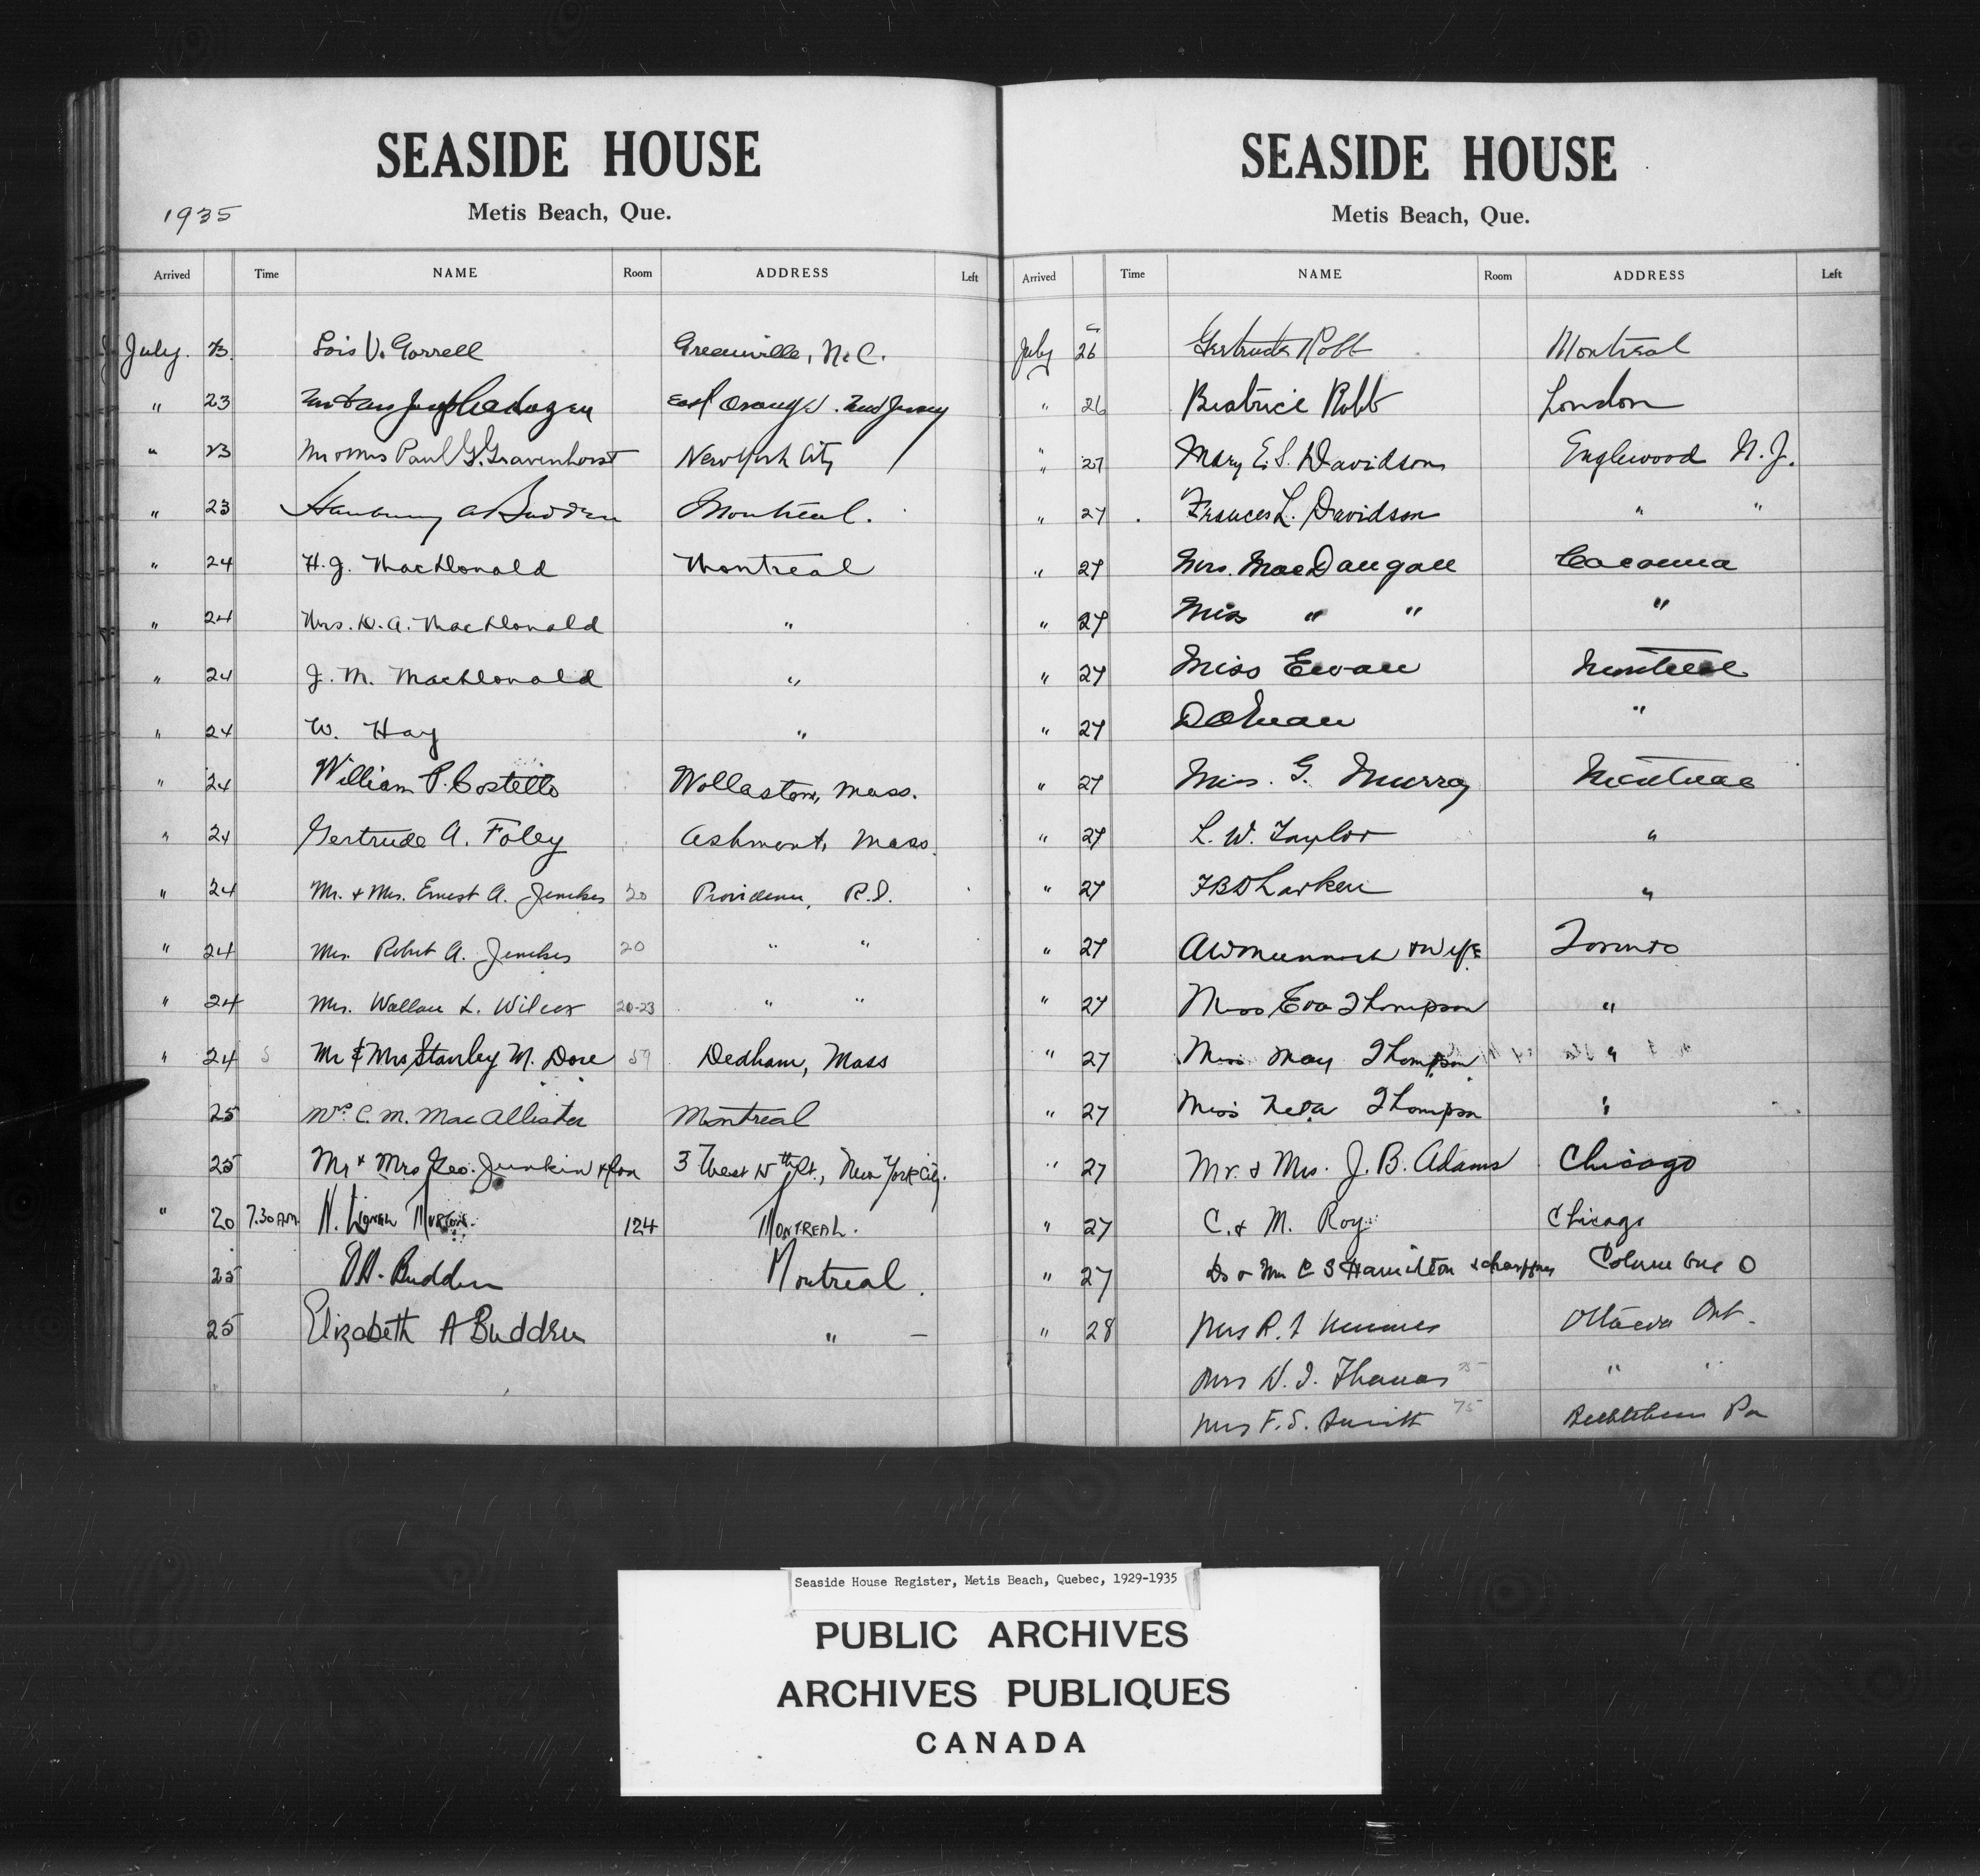 SEASIDE HOUSE
Metis Beach, Que.
1935
Arrived Time NAME Room ADDRESS Left
July. 23 Lois V. Gorrell Greenville, N.C.
" 23 East Orange. New Jersey
" 23 Mr & Mrs Paul G. Gravenhorst New York City
" 23 Hanbury A Budden Montreal.
" 24 H. J. MacDonald Montreal
" 24 Mrs. D. A. MacDonald "
" 24 J. M. MacDonald "
" 24 W. Hay "
" 24 William P. Costello Wollaston, Mass.
" 24 Gertrude A. Foley Ashmont, Mass.
" 24 Mr. & Mrs. Ernest A. Jenckes 20 Providence, R.I.
" 24 Mrs. Robert A. Jenckes 20 " "
" 24 Mrs. Wallace L. Wilcox 20-23 " "
" 24 5 Mr & Mrs Stanley M. Dore 59 Dedham, Mass
25 Mrs. C. M. MacAllister Montreal
25 Mr & Mrs Geo. Junkin & Son 3 West 15th St., New York City.
" 20 7.30 AM N. Lionel 124 MONTREAL.
25 Budden Montreal.
25 Elizabeth A Budden " —
SEASIDE HOUSE
Metis Beach, Que.
Arrived Time NAME Room ADDRESS Left
July 26 Gertrude Robb Montreal
" 26 Beatrice Robb London
" 27 Mary E. S. Davidson Englewood N. J.
" 27 Frances L. Davidson " "
" 27 Mrs. MacDougall Cacouna
" 27 Miss " " "
" 27 Miss Ewan Montreal
" 27 "
" 27 Miss. G. Murray Montreal
" 27 L. W. Taylor "
" 27 Larken "
" 27 & Wife Toronto
" 27 Miss Eva Thompson "
" 27 Miss May Thompson "
" 27 Miss Neta Thompson "
" 27 Mr. & Mrs. J. B. Adams Chicago
" 27 C. & M. Roy Chicago
" 27 Dr & Mrs C S Hamilton & chauffeur Columbus O
" 28 Mrs R. Ottawa Ont.
Mrs W. I. Thomas 75 " "
Mrs F. S. Smith 75 Bethlehem Pa
Seaside House Register, Metis Beach, Quebec, 1929-1935
PUBLIC ARCHIVES
ARCHIVES PUBLIQUES
CANADA